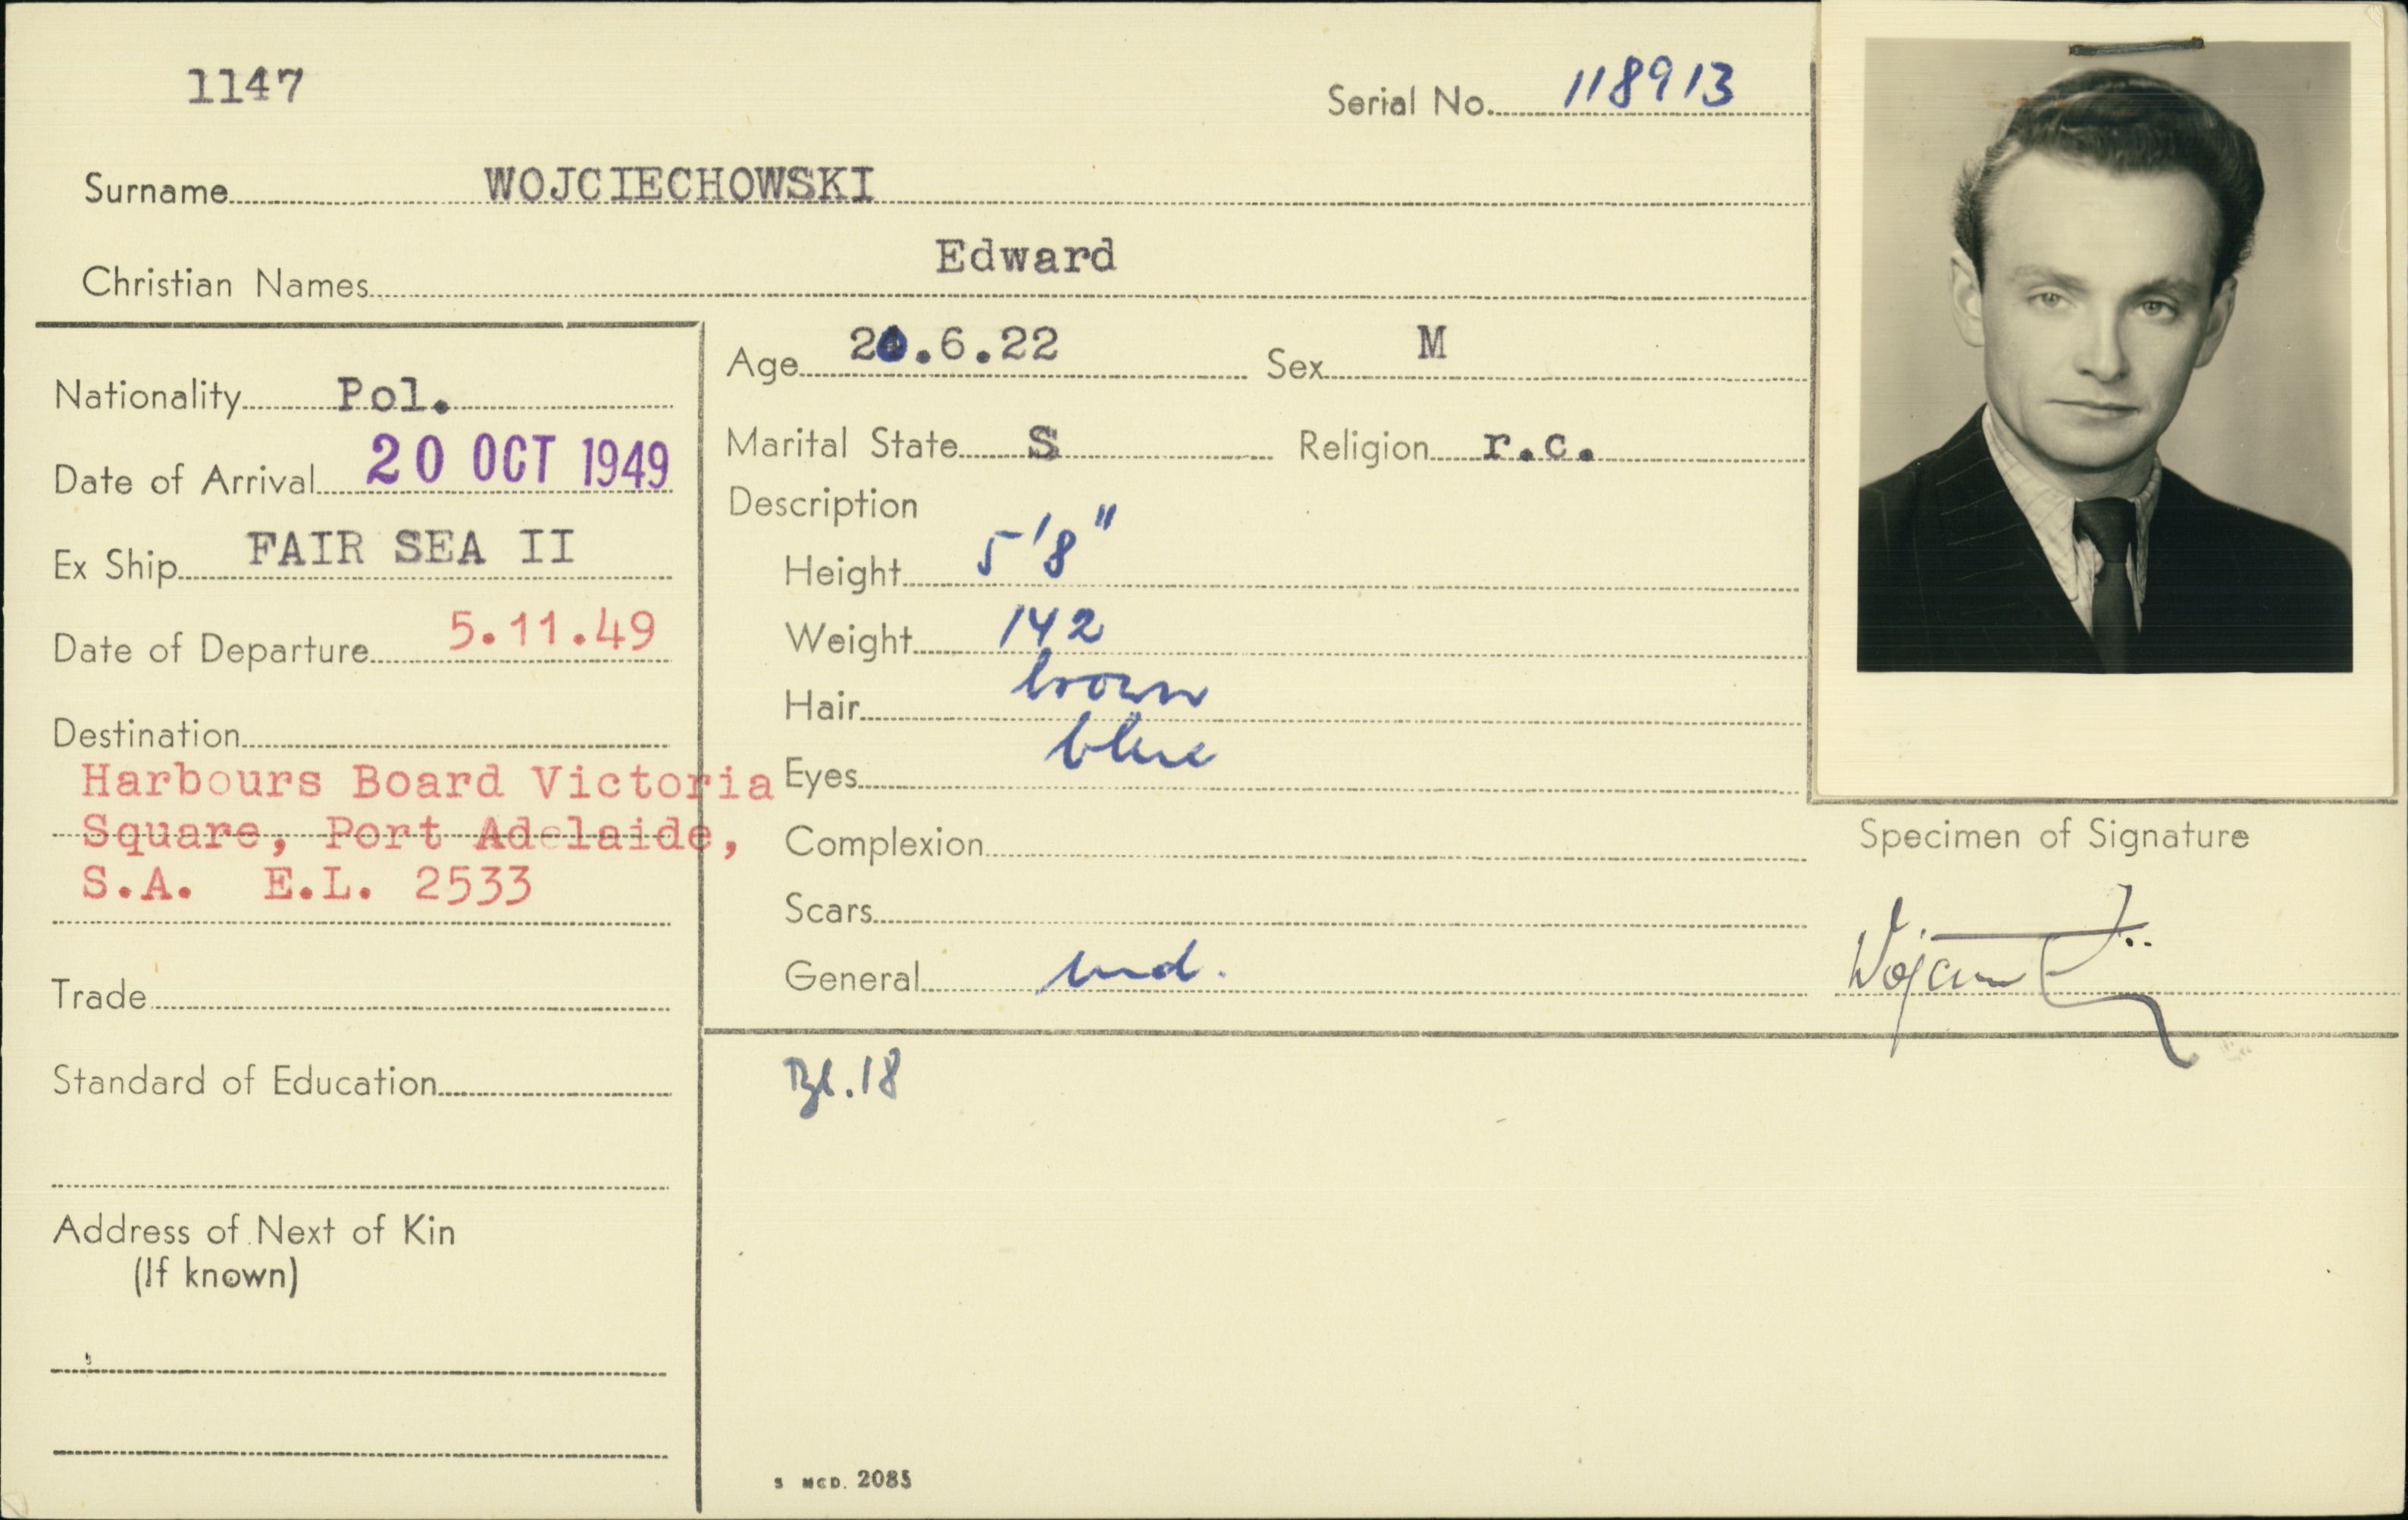 1147
Serial No. 118913
Surname WOJCIECHOWSKI
Christian Names Edward
Nationality Pol.
Date of Arrival 20 OCT 1949
Ex Ship FAIR SEA II
Date of Departure 5.11.49
Destination
Harbours Board Victoria
Square, Port Adelaide,
S.A. E.L. 2533
Trade
Standard of Education
Address of Next of Kin
(If known)
Age 20.6.22 Sex M
Marital State S Religion r.c.
Description
Height 5'8"
Weight 142
Hair brown
Eyes blue
Complexion
Scars
General
Bl.18
2085
Specimen of Signature